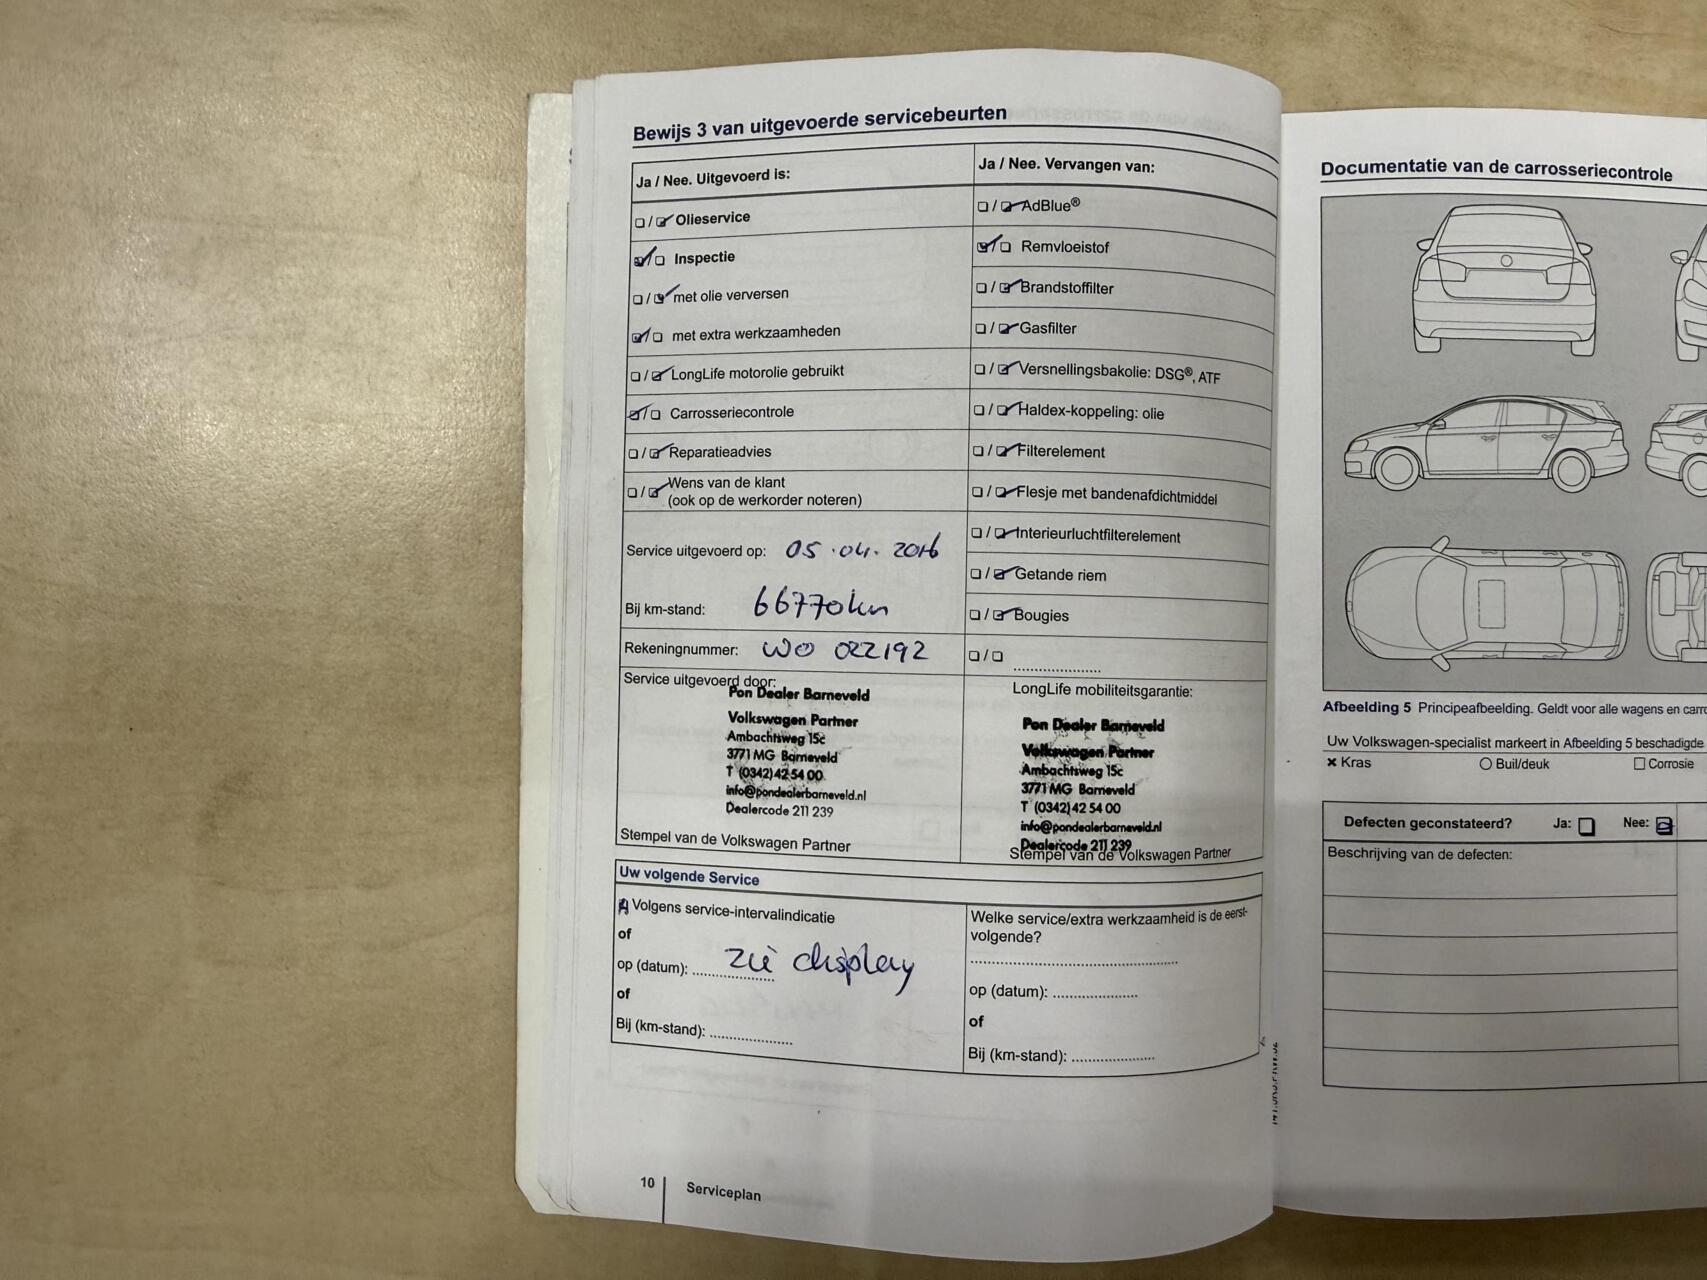 Bewijs 3 van uitgevoerde servicebeurten
Ja / Nee. Uitgevoerd is:
Olieservice
Inspectie
met olie verversen
met extra werkzaamheden
LongLife motorolie gebruikt
Carrosseriecontrole
Reparatieadvies
Wens van de klant
(ook op de werkorder noteren)
Service uitgevoerd op: 05.04.2016
Bij km-stand: 66770km
Rekeningnummer: WO 022192
Service uitgevoerd door:
Pon Dealer Barneveld
Volkswagen Partner
Ambachtsweg 15c
3771 MG Barneveld
T (0342) 42 54 00
info@pondealerbarneveld.nl
Dealercode 211 239
Stempel van de Volkswagen Partner
Ja / Nee. Vervangen van:
AdBlue®
Remvloeistof
Brandstoffilter
Gasfilter
Versnellingsbakolie: DSG®, ATF
Haldex-koppeling: olie
Filterelement
Flesje met bandenafdichtmiddel
Interieurluchtfilterelement
Getande riem
Bougies
LongLife mobiliteitsgarantie:
Pon Dealer Barneveld
Volkswagen Partner
Ambachtsweg 15c
3771 MG Barneveld
T (0342) 42 54 00
info@pondealerbarneveld.nl
Dealercode 211 239
Stempel van de Volkswagen Partner
Uw volgende Service
Volgens service-intervalindicatie
of
op (datum): zie display
of
Bij (km-stand):
Welke service/extra werkzaamheid is de eerst-
volgende?
op (datum):
of
Bij (km-stand):
10 Serviceplan
Documentatie van de carrosseriecontrole
Afbeelding 5 Principeafbeelding. Geldt voor alle wagens en
Uw Volkswagen-specialist markeert in Afbeelding 5 beschadigde
Kras Buil/deuk Corrosie
Defecten geconstateerd? Ja: Nee:
Beschrijving van de defecten: